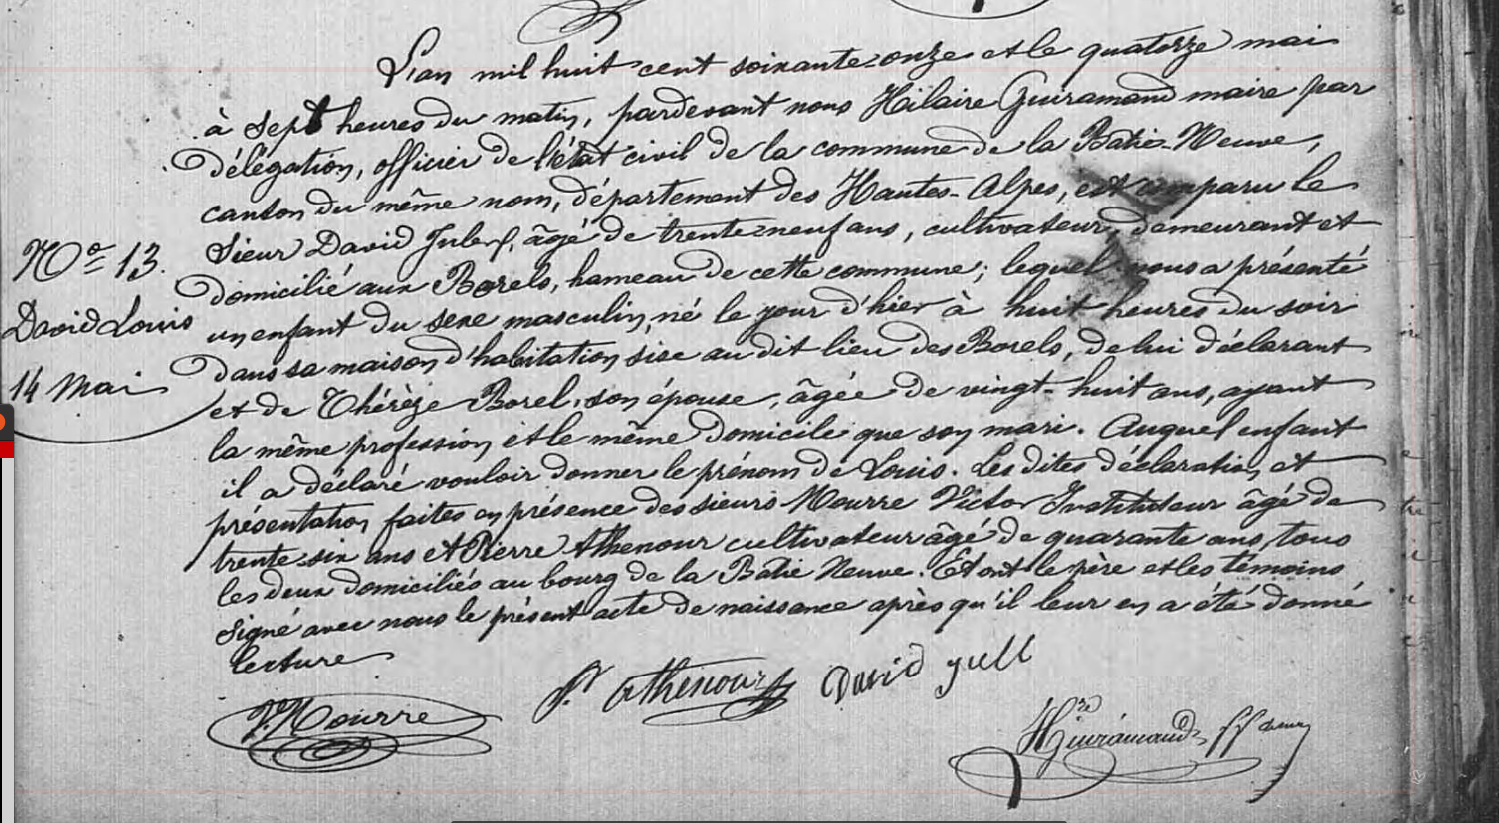 L'an mil huit cent soixante-onze et le quatorze mai
à sept heures du matin, pardevant nous Hilaire Guiramand maire par
délégation, officier de l'état civil de la commune de la Batie-Neuve,
canton du même nom, département des Hautes-Alpes, est comparu le
Sieur David Jules, âgé de trente-neuf ans, cultivateur, demeurant et
domicilié aux Borels, hameau de cette commune; lequel nous a présenté
un enfant du sexe masculin, né le jour d'hier à huit heures du soir
dans sa maison d'habitation sise au dit lieu des Borels, de lui déclarant
et de Thérèze Borel, son épouse, âgée de vingt-huit ans, ayant
la même profession et le même domicile que son mari. Auquel enfant
il a déclaré vouloir donner le prénom de Louis. Les dites déclaration et
présentation faites en présence des sieurs Mourre Victor Instituteur âgé de
trente-six ans et Pierre Athenour cultivateur âgé de quarante ans, tous
les deux domiciliés au bourg de la Batie Neuve. Et ont le père et les témoins
signé avec nous le présent acte de naissance après qu'il leur en a été donné
lecture
N° 13.
David Louis
14 Mai
V. Mourre
P. Athenour
David
H Guiramand